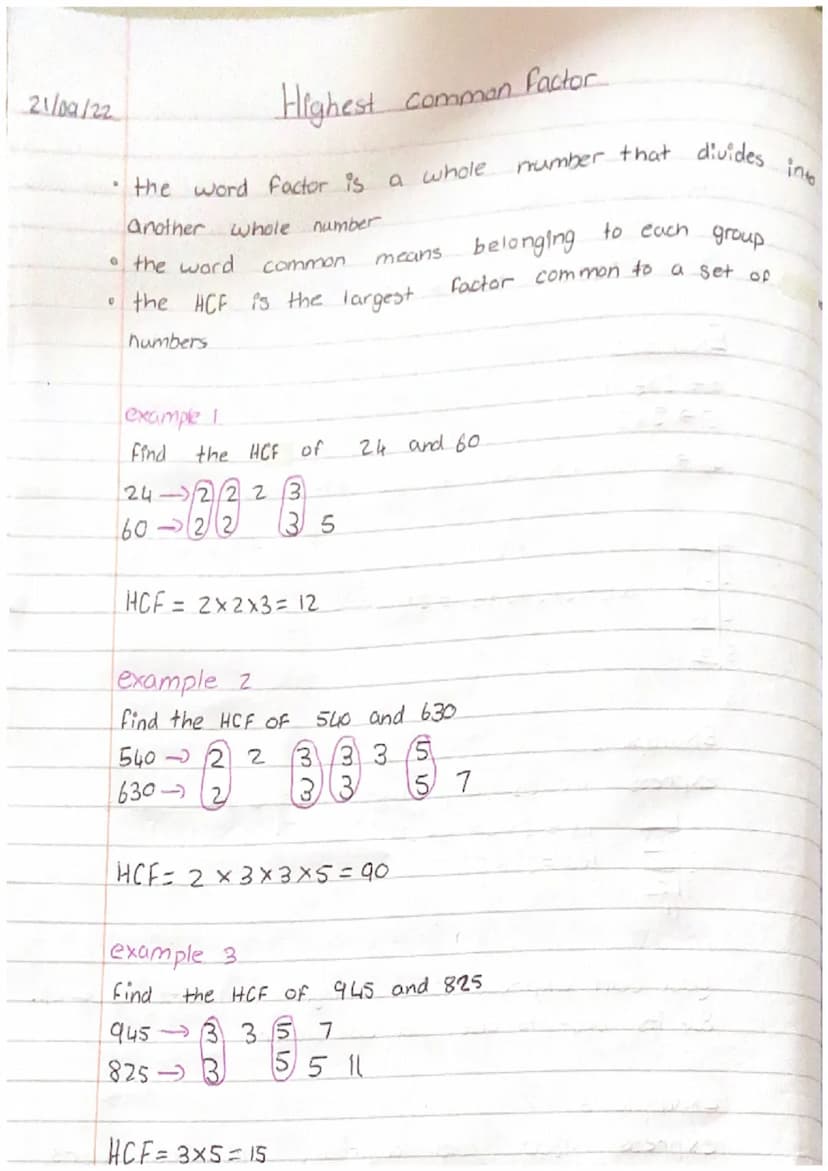 21/09/22
Highest common factor
• the word factor is a whole number that divides into
another whole number
• the word common means belonging to each group
• the HCF is the largest factor common to a set of
numbers
example 1
find the HCF of 24 and 60
24 → 2 2 2 3
60 → 2 2 3 5
HCF = 2×2×3 = 12
example 2
find the HCF OF 540 and 630
540 → 2 2 3 3 3 5
630 → 2 3 3 5 7
HCF = 2 × 3 × 3 × 5 = 90
example 3
find the HCF OF 945 and 825
945 → 3 3 5 7
825 → 3 5 5 11
HCF = 3×5 = 15